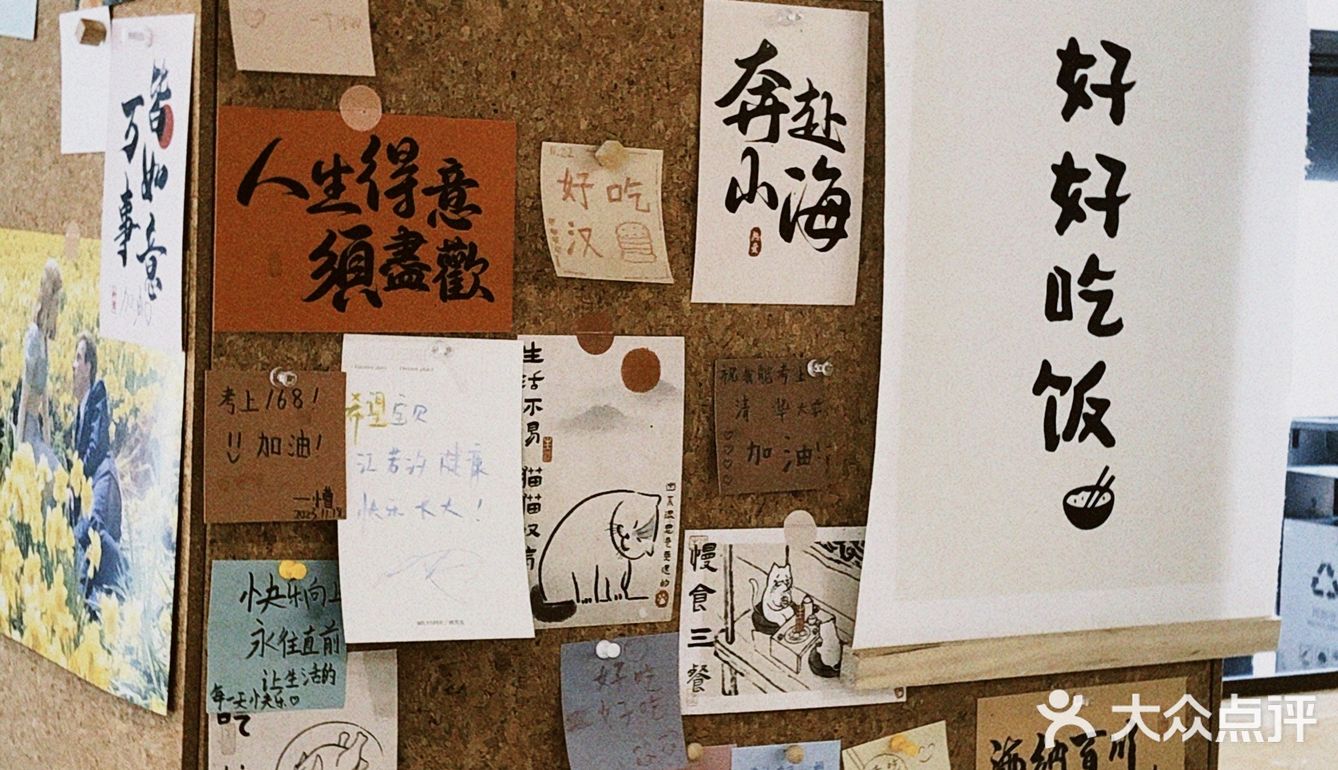 皆如意
万事
人生得意
須盡歡
好吃
汉
奔赴
山海
好好吃饭
考上168!
加油!
希望宝贝
健康
快乐长大!
生活不易 猫猫叹气
清华大学
加油!
慢食三餐
快乐向上
永往直前
让生活的
每一天快乐♡
吃
好吃
好吃
海纳百川
大众点评